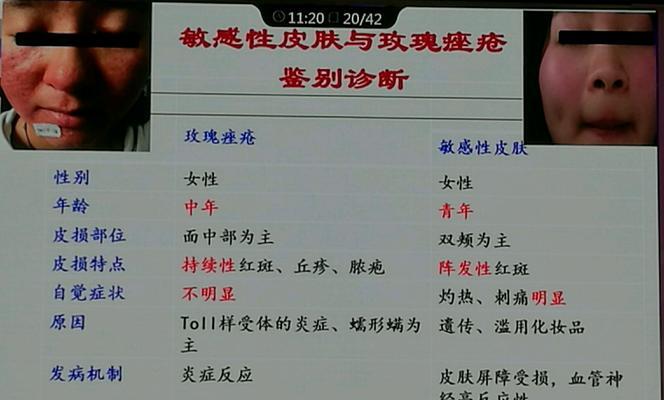 11:20 20/42
敏感性皮肤与玫瑰痤疮
鉴别诊断
玫瑰痤疮 敏感性皮肤
性别 女性 女性
年龄 中年 青年
皮损部位 面中部为主 双颊为主
皮损特点 持续性红斑、丘疹、脓疱 阵发性红斑
自觉症状 不明显 灼热、刺痛明显
原因 Toll样受体的炎症、蠕形螨为 遗传、滥用化妆品
主
发病机制 炎症反应 皮肤屏障受损，血管神
经高反应性